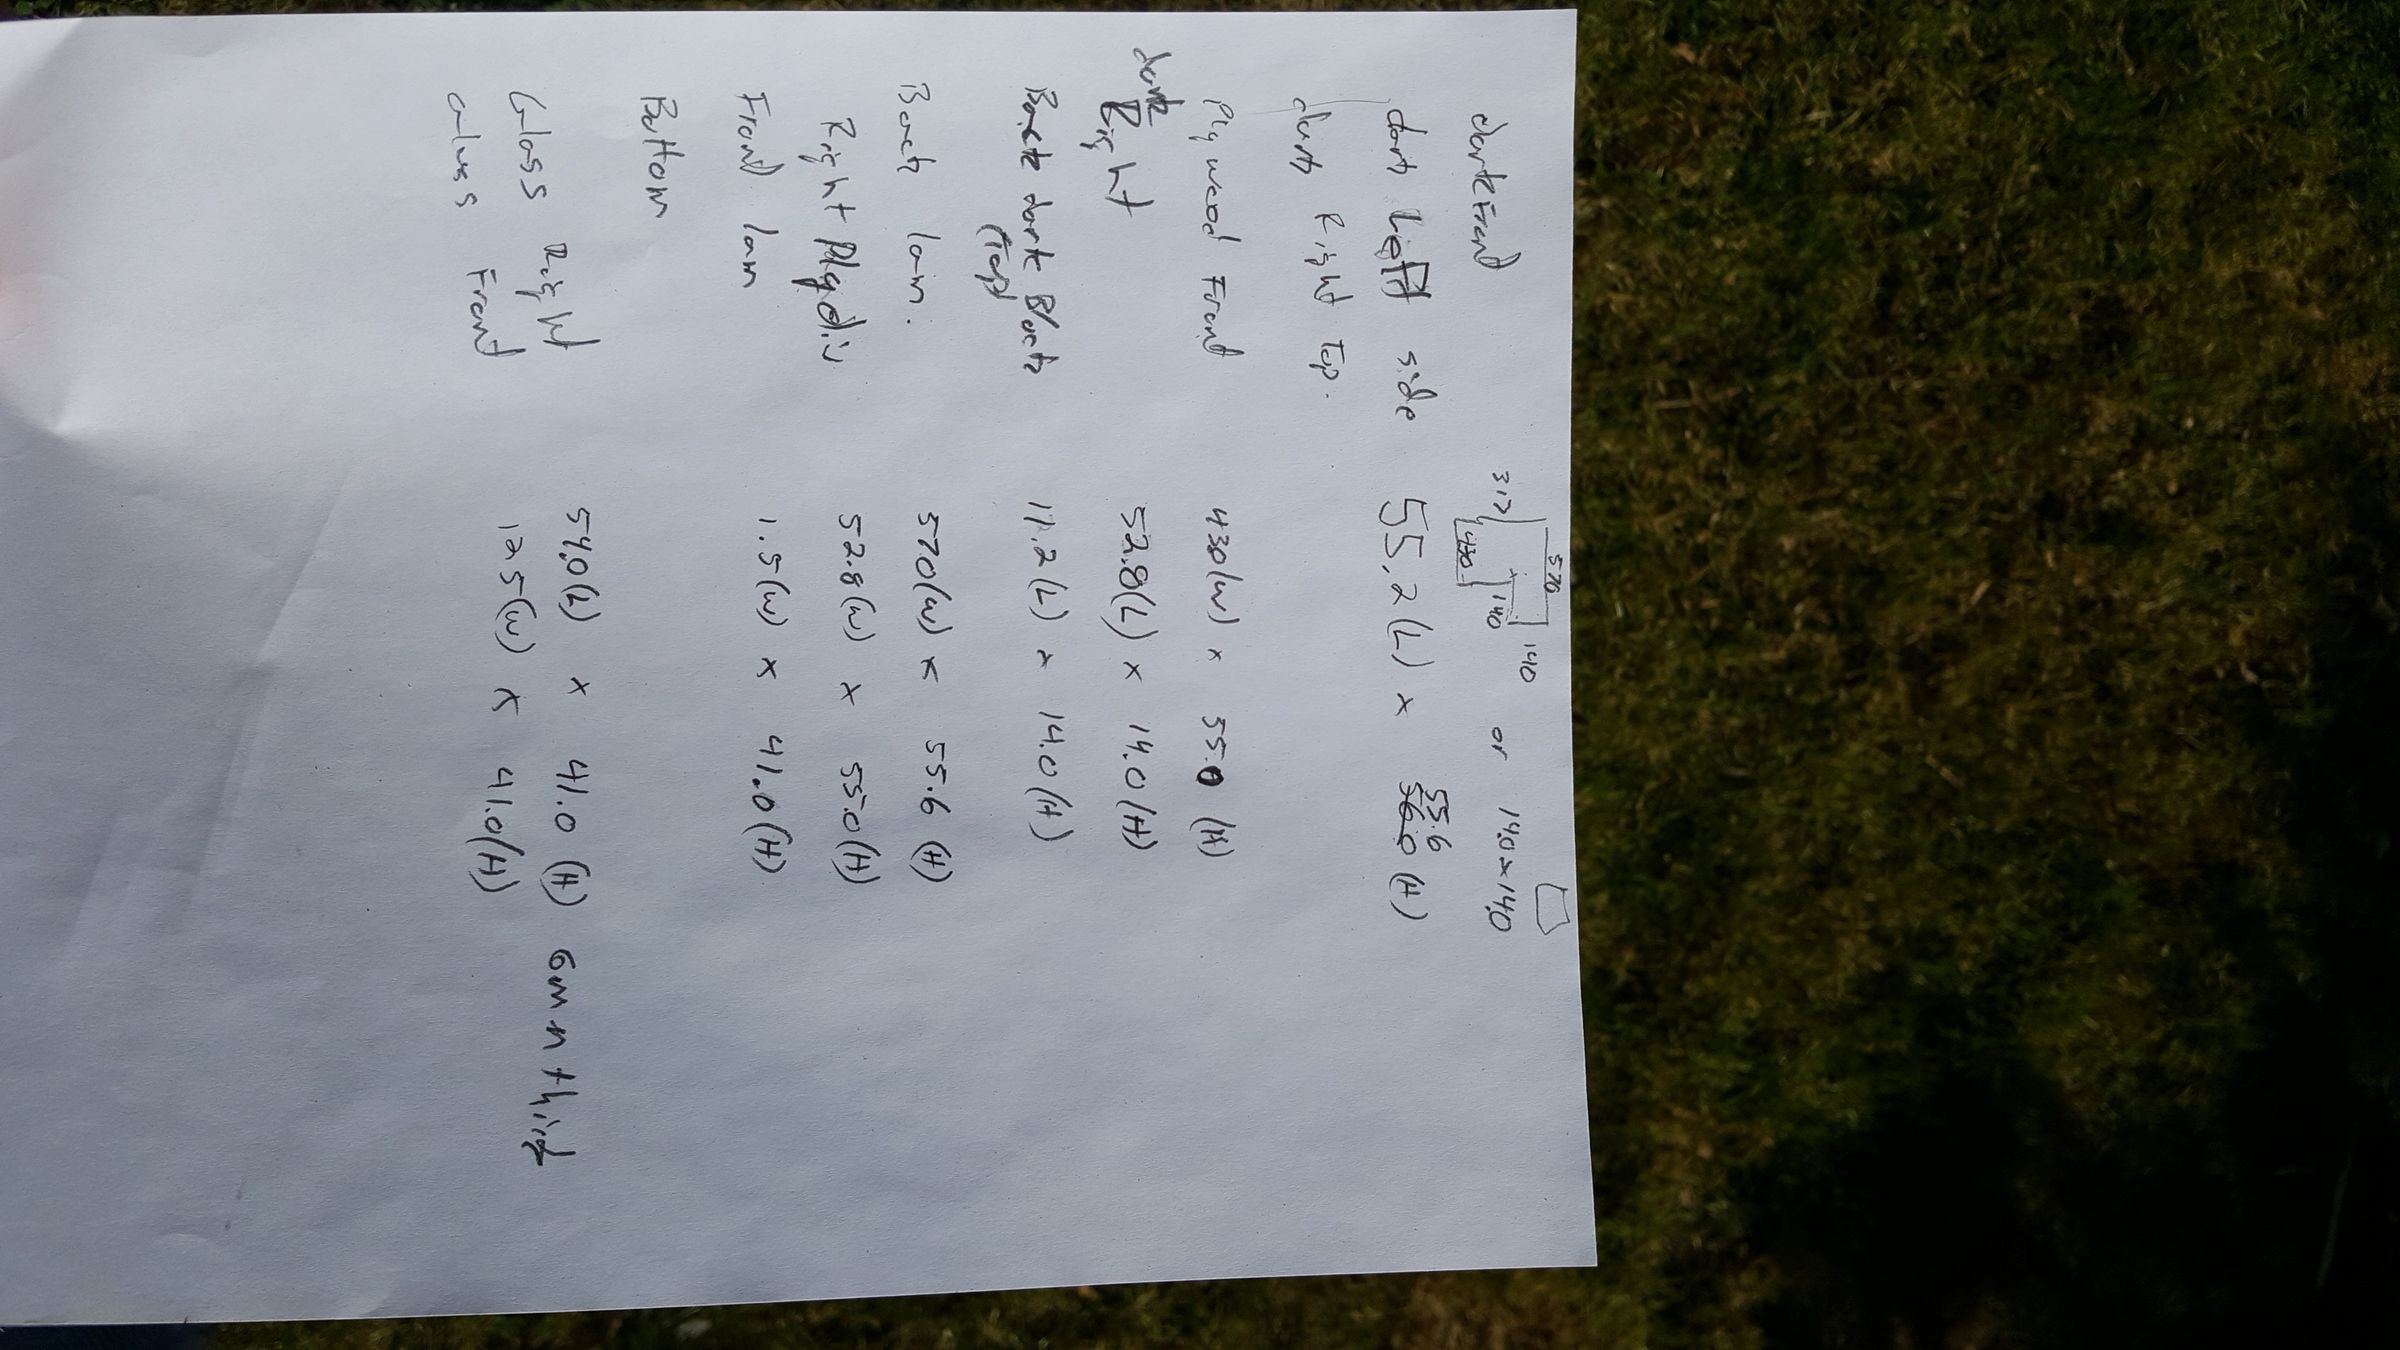 dark Front 317 570 430 140 140 or 14.0 x 14.0
dark Left side 55.2 (L) x 55.6 56.0 (H)
dark Right Top.
Plywood Front 430 (W) x 55.0 (H)
dark Right 52.8 (L) x 14.0 (H)
Back dark Black 11.2 (L) x 14.0 (H)
(Top)
Back lam. 570 (W) x 55.6 (H)
Right Ply div 52.8 (W) x 55.0 (H)
Front lam 1.5 (W) x 41.0 (H)
Bottom
Glass Right 54.0 (L) x 41.0 (H) 6mm thick
Glass Front 12.5 (W) x 41.0 (H)